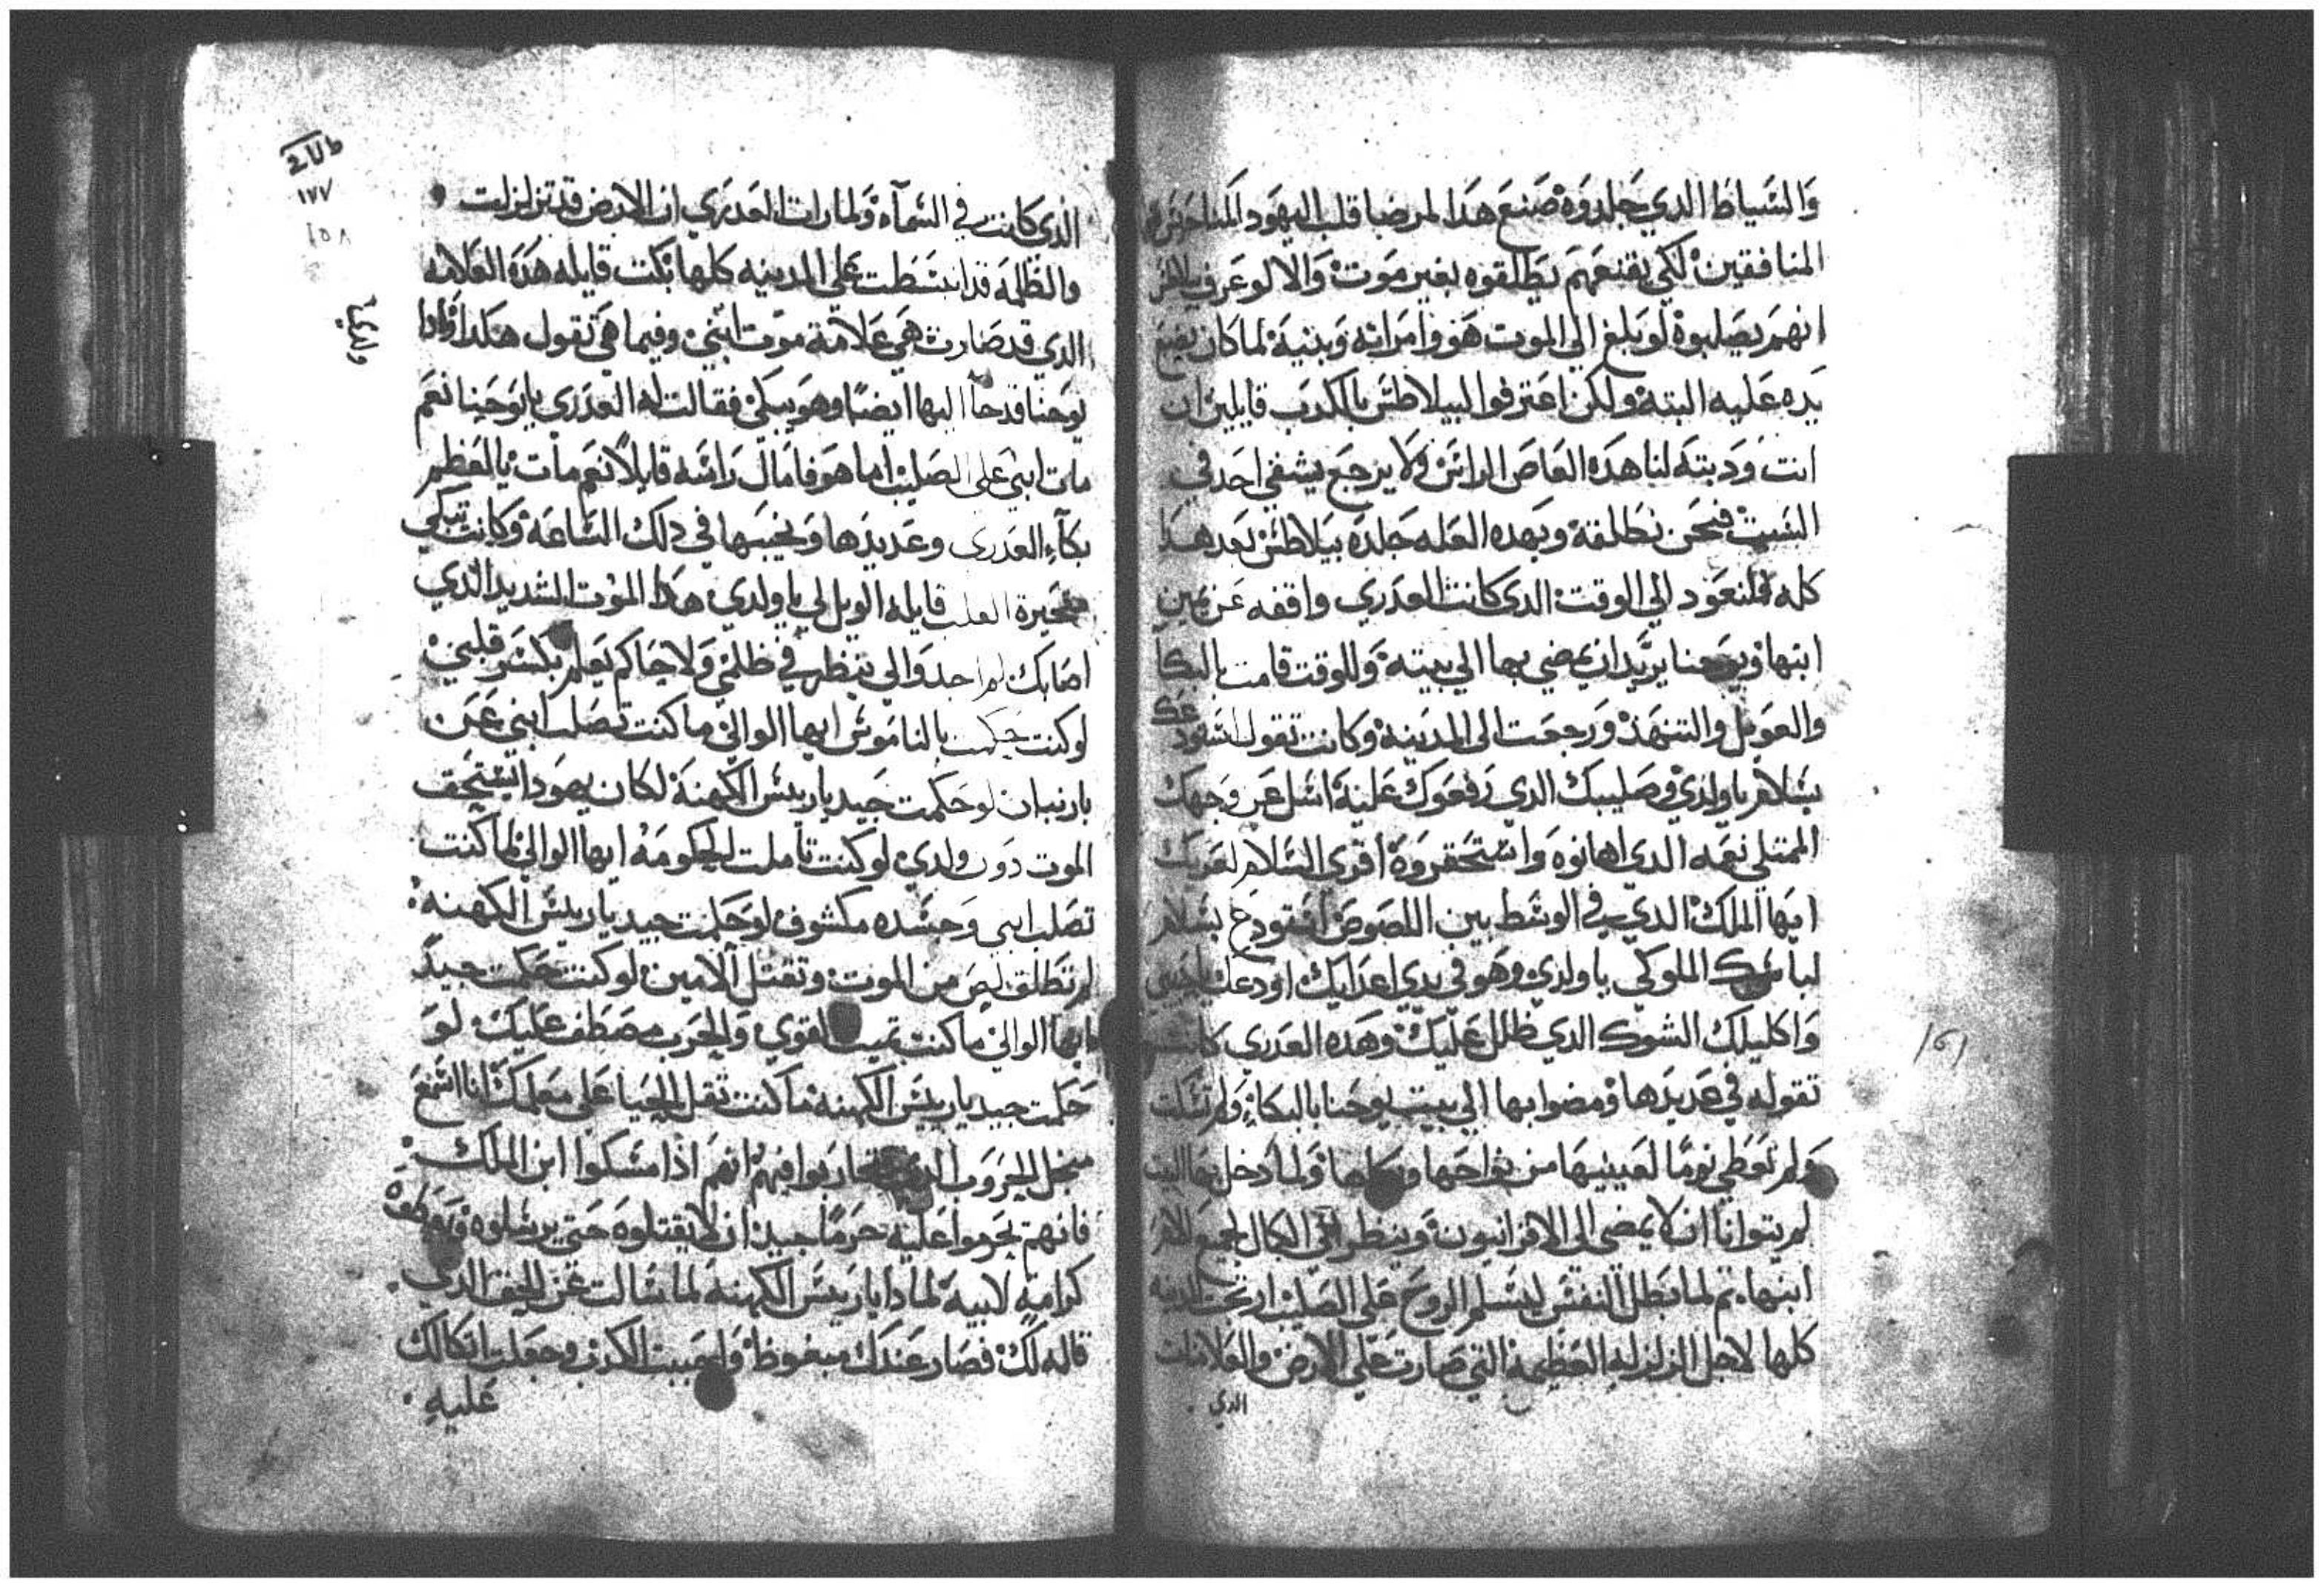 والسياط الدي جلدوه صنع هدا لمرضيا قلب اليهود
المنافقين لكي يقنعهم يطلقوه بغير موت والا لو عرف
انهم يصلبوه لو بلغ الي الموت هو وامراته وبنيه لما كان يضع
يده عليه البته ولكن اعترفوا البيلاطس بالكدب قايلين ان
انت ودبته لنا هده العاص الراس ولا يرجع يشفي احد في
السبت فنحن نطلقه وبهده العله جلده بيلاطس بعد هدا
كله فلنعود الي الوقت الدي كانت العدري واقفه عن يمين
ابنها ويوحنا يريد ان يمضي بها الي بيته وللوقت قامت بالبكا
والعويل والتنهد ورجعت الي المدينه وكانت تقول
بسلام يا ولدي في صليبك الدي رفعوك عليه اسل عن وجهك
الممتلي نعمه الدي اهانوه واستحقروه اقري السلام لعريك
ايها الملك الدي في الوسط بين اللصوص بسلام
لباسك الملوكي يا ولدي وهو في يدي اعدايك اودعك
واكليلك الشوك الدي ظلل عليك وهده العدري كانت
تقوله في عديدها ومضوا بها الي بيت يوحنا بالبكاء ولم تسكت
ولم تعطي نوما لعينيها من نواحها وبكاها ولما دخل بها البيت
لم يتوانا ان لا يمضي الي الاقرانيون وينظر الي الكمال لجميع
ابنها. تم لما بطل النفس ليسلم الروح علي الصليب ارتجت المدينه
كلها لاجل الزلزله العظيمه التي صارت علي الارض والعلامات
الدي
١٧٧
١٥٨
الدي كانت في السماء ولما رات العدري ان الارض قد تزلزلت
والظلمه قد انبسطت علي المدينه كلها بكت قايله هده العلامه
الدي قد صارت هي علامة موت ابني وفيما هي تقول هكدا وادا
يوحنا قد جاا اليها ايضا وهو يبكي فقالت له العدري يا يوحنا نعم
مات ابني علي الصليب اما هو فامال راسه قايلا نعم مات يا لعظم
بكاء العدري وعديدها ونحيبها في دلك الساعه وكانت تبكي
قايله الويل لي يا ولدي هدا الموت الشديد الدي
اصابك لم اجد والي ينظر في ظلمي ولا حاكم يعلم بكسر قلبي
لو كنت حكمت بالناموس ايها الوالي ما كنت تصلب ابني عمن
بارنبان لو حكمت جيد يا ريس الكهنه لكان يهودا يستحق
الموت دون ولدي لو كنت تاملت الحكومه ايها الوالي لما كنت
تصلب ابني وجسده مكشوف لو حكمت جيد يا ريس الكهنه
لم تطلق لص من الموت وتقتل الامين لو كنت حكمت جيد
ايها الوالي ما كنت تميت القوي والحرب مصطف عليك لو
حكمت جيد يا ريس الكهنه ما كنت تقل الحيا علي معلمك انا اسمع
من اجل الحروب الدي تحاربوا فيهم انهم ادا مسكوا ابن الملك
فانهم يحرموا عليه حرما جيد ان لا يقتلوه حتي يرسلوه
كراميه لابيه لمادا يا ريس الكهنه لما سالت عن الحق الدي
قاله لك فصار عندك مبغوظ واحببت الكدب وجعلت اتكالك
عليه